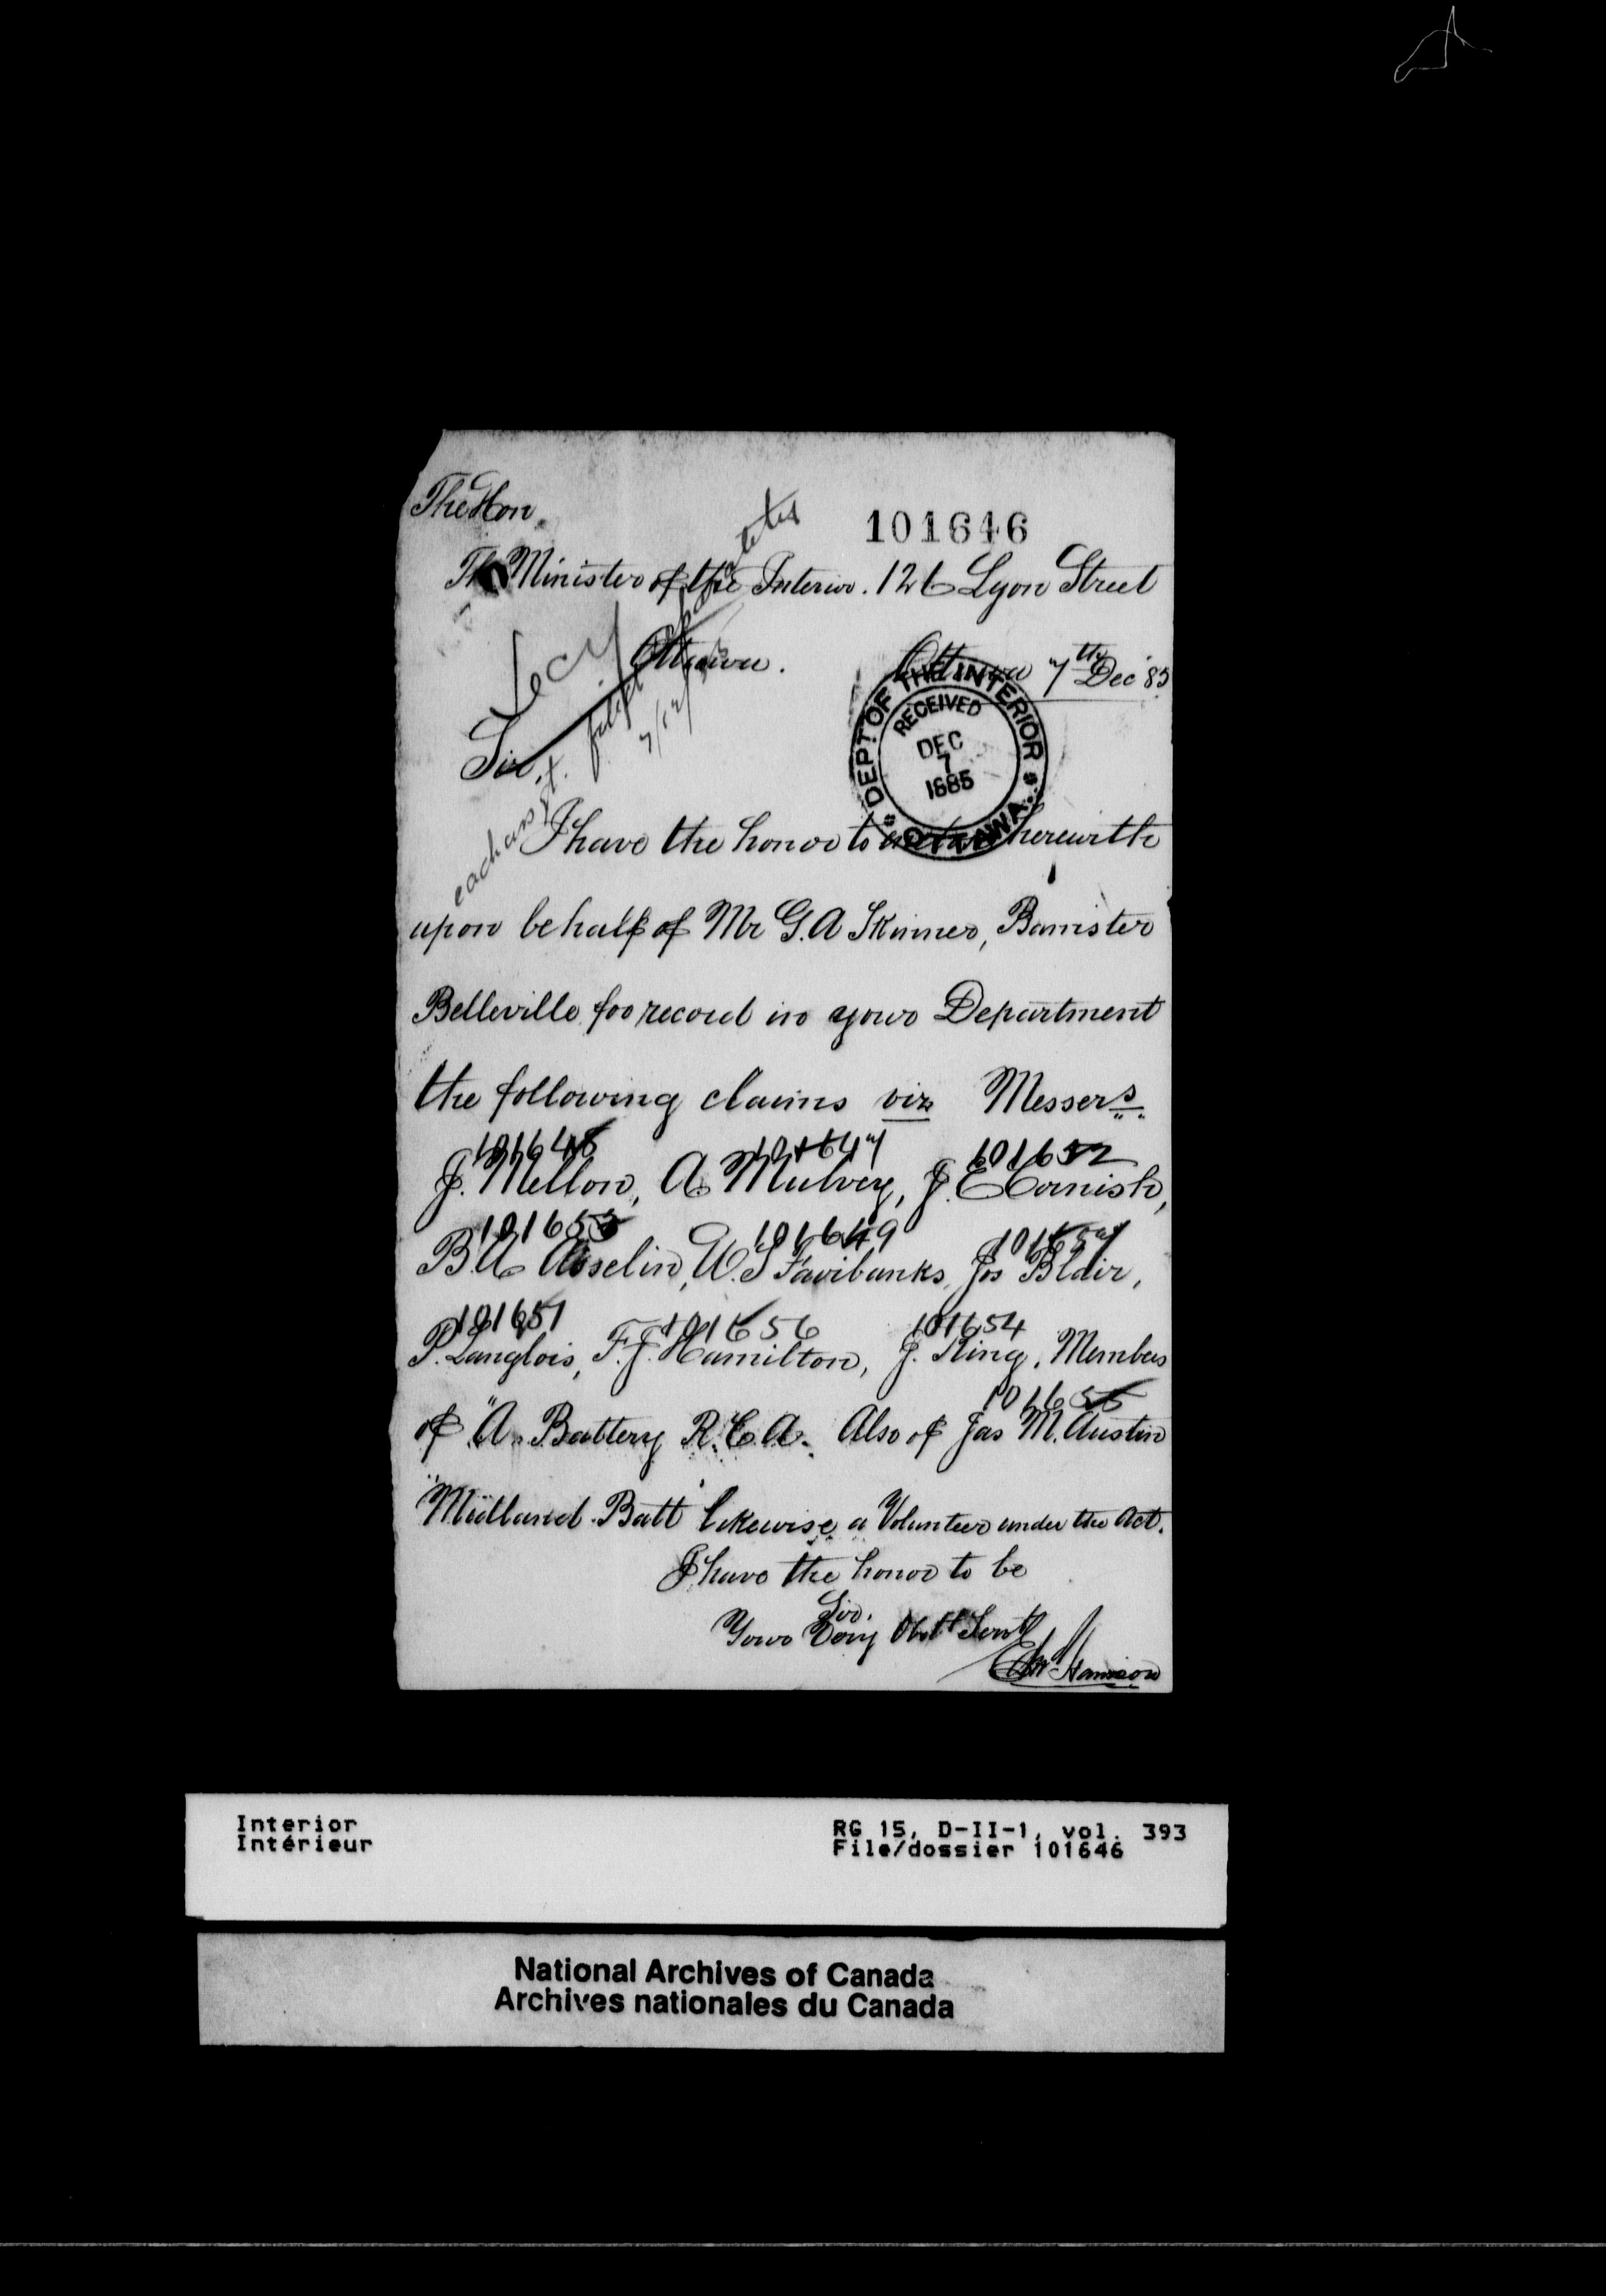 The Hon.
101646
The Minister of the Interior. 126 Lyon Street
Ottawa.
Ottawa 7th Dec '85
Secy
7/12/85
DEPT OF THE INTERIOR
RECEIVED
DEC
7
1885
OTTAWA
Sir,
I have the honor to enclose herewith
upon behalf of Mr G. A Skinner, Barrister
Belleville for record in your Department
the following claims viz Messers
101648 101647 101652
J. Mellon, A. Mulvey, J. E Cornish,
101653 101649 101657
B. A. Asselin, W. S Fairbanks, Jos Blair,
101651 101656 101654
P. Langlois, F. J. Hamilton, J. King, Members
101655
of "A" Battery R. C. A. Also of Jas M. Austin
"Midland Batt" likewise a Volunteer under the Act.
I have the honor to be
Sir.
Your Very Obdt Servt
Harrison
Interior
Intérieur
RG 15, D-II-1, vol. 393
File/dossier 101646
National Archives of Canada
Archives nationales du Canada